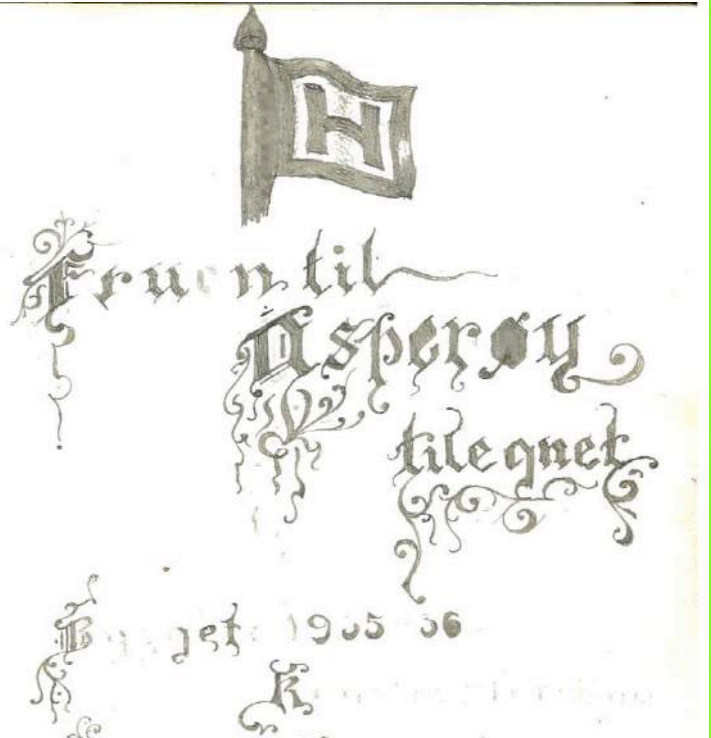 H
Fruen til
Asperøy
tilegnet
Bygget 1935-36